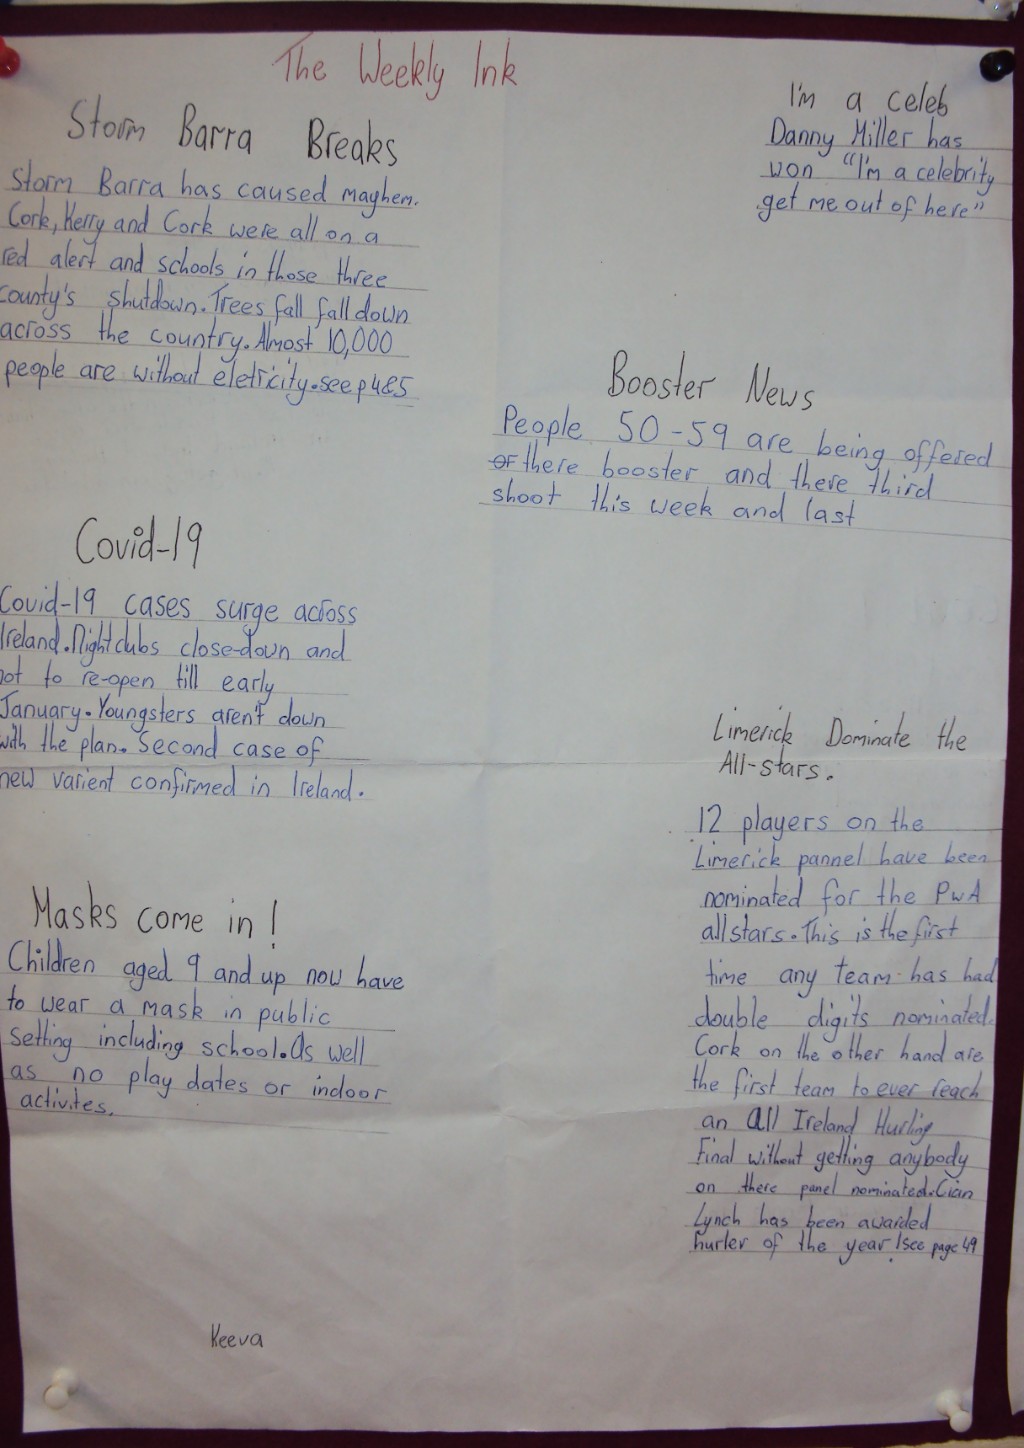 The Weekly Ink
Storm Barra Breaks
Storm Barra has caused mayhem.
Cork, Kerry and Cork were all on a
red alert and schools in those three
county's shutdown. Trees fall fall down
across the country. Almost 10,000
people are without eletricity. see p4&5
Covid-19
Covid-19 cases surge across
Ireland. Nightclubs close-down and
not to re-open till early
January. Youngsters aren't down
with the plan. Second case of
new varient confirmed in Ireland.
Masks come in!
Children aged 9 and up now have
to wear a mask in public
setting including school. As well
as no play dates or indoor
activites.
Keeva
I'm a celeb
Danny Miller has
won "I'm a celebrity
get me out of here"
Booster News
People 50-59 are being offered
OF there booster and there third
shoot this week and last
Limerick Dominate the
All-stars.
12 players on the
Limerick pannel have been
nominated for the PwA
allstars. This is the first
time any team has had
double digits nominated.
Cork on the other hand are
the first team to ever reach
an All Ireland Hurling
Final without getting anybody
on there panel nominated. Cian
Lynch has been awarded
hurler of the year! see page 49